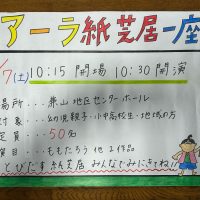 アーラ紙芝居一座
/7(土) 10:15 開場 10:30 開演
場所・・・兼山地区センターホール
対象・・・幼児親子・小中高校生・地域の方
定員・・・50名
演目・・・ももたろう 他2作品
とびだす紙芝居 みんなでみにきてね!!